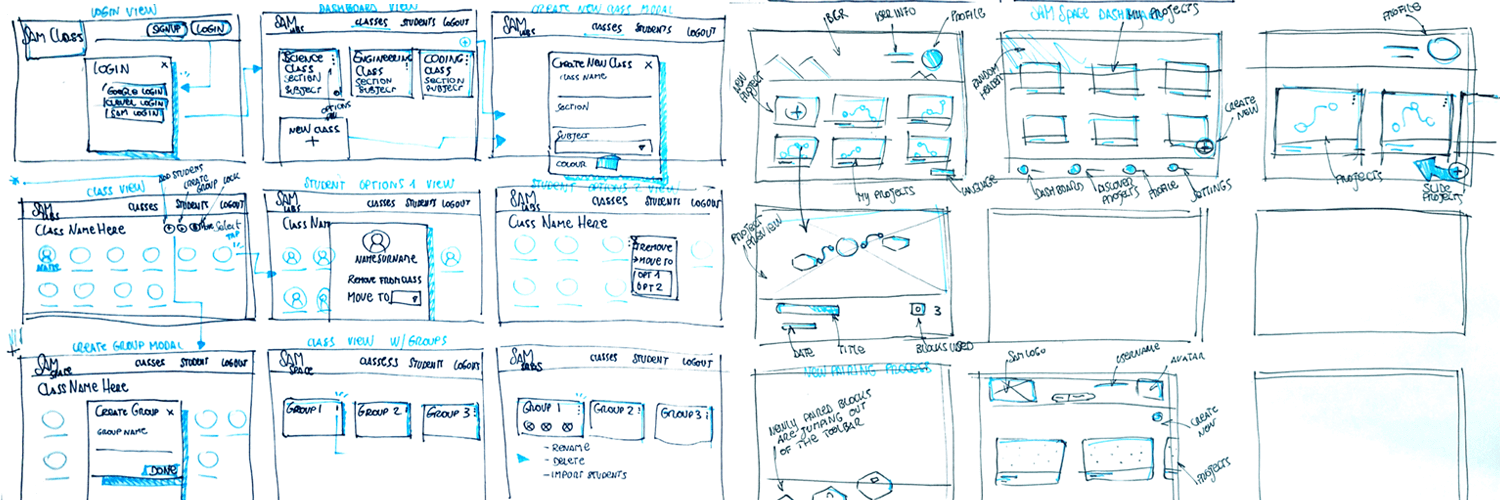 LOGIN VIEW
SAM CLASS
SIGNUP
LOGIN
LOGIN ×
GOOGLE LOGIN
CLEVER LOGIN
SAM LOGIN
DASHBOARD VIEW
SAM LABS
CLASSES STUDENTS LOGOUT
SCIENCE CLASS SECTION SUBJECT
ENGINEERING CLASS SECTION SUBJECT
CODING CLASS SECTION SUBJECT
OPTIONS
NEW CLASS
+
CREATE NEW CLASS MODAL
SAM LABS
CLASSES STUDENTS LOGOUT
CREATE NEW CLASS ×
CLASS NAME
SECTION
SUBJECT
COLOUR
CLASS VIEW
ADD STUDENT
CREATE GROUP
LOCK
SAM LABS
CLASSES STUDENTS LOGOUT
CLASS NAME HERE
Select
TAP
NAME
STUDENT OPTIONS 1 VIEW
SAM LABS
CLASSES STUDENTS LOGOUT
CLASS NAM
NAME SURNAME
REMOVE FROM CLASS
MOVE TO
STUDENT OPTIONS 2 VIEW
SAM LABS
CLASSES STUDENTS LOGOUT
CLASS NAME HERE
REMOVE
MOVE TO
OPT 1
OPT 2
CREATE GROUP MODAL
SAM SPACE
CLASSES STUDENT LOGOUT
CLASS NAME HERE
CREATE GROUP ×
GROUP NAME
DONE
CLASS VIEW W/GROUPS
SAM SPACE
CLASSES STUDENTS LOGOUT
GROUP 1
GROUP 2
GROUP 3
SAM LABS
CLASSES STUDENT LOGOUT
GROUP 1
GROUP 2
GROUP 3
- RENAME
- DELETE
- IMPORT STUDENTS
BGR
USER INFO
PROFILE
NEW PROJECT
MY PROJECTS
LANGUAGE
SAM SPACE DASHBOARD
MY PROJECTS
RANDOM HEADER
CREATE NEW
DASHBOARD
DISCOVER PROJECTS
PROFILE
SETTINGS
PROFILE
PROJECTS
SLIDE PROJECTS
PROJECT PREVIEW
3
DATE
TITLE
BLOCKS USED
NEW PAIRING PROCESS
NEWLY PAIRED BLOCKS
ARE JUMPING OUT
OF THE TOOLBAR
SAM LOGO
USERNAME
AVATAR
CREATE NEW
PROJECTS